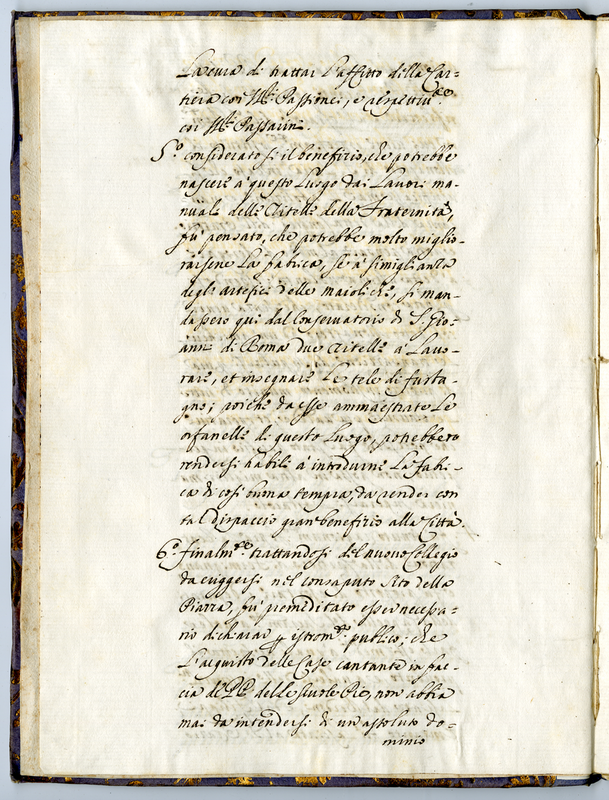 La cura di trattar l'affitto della Car-
tiera coi SS.ri Passionei, e respettiu.te
coi SS.ri Passarini.
5.° considerato si il benefizio, che potrebbe
nascere à questo Luogo dai Lauori ma-
nuali delle Zitelle della Fraternità,
fù pensato, che potrebbe molto miglio-
rarsene la fabrica, se à simiglianza
degli artefici delle maioliche, si man-
dassero qui dal Conservatorio di S. Gio-
anni di Roma due Zitelle à Lauo-
rare, et insegnare le tele di fusta-
gno; poiche da esse ammaestrate le
orfanelle di questo Luogo, potrebbero
rendersi habili à introdurne la fabri-
ca di così buona tempra, da render con
tal dispaccio gran benefizio alla Città.
6.° finalm.te trattandosi del nuovo Collegio
da eriggersi nel consaputo sito della
Piazza, fù premeditato esser necessa-
rio dichiarar p istrom.to publico; che
l'acquisto delle Case cantante in fac-
cia de PP. delle Scuole Pie, non abbia
mai da intendersi di un assoluto do-
minio